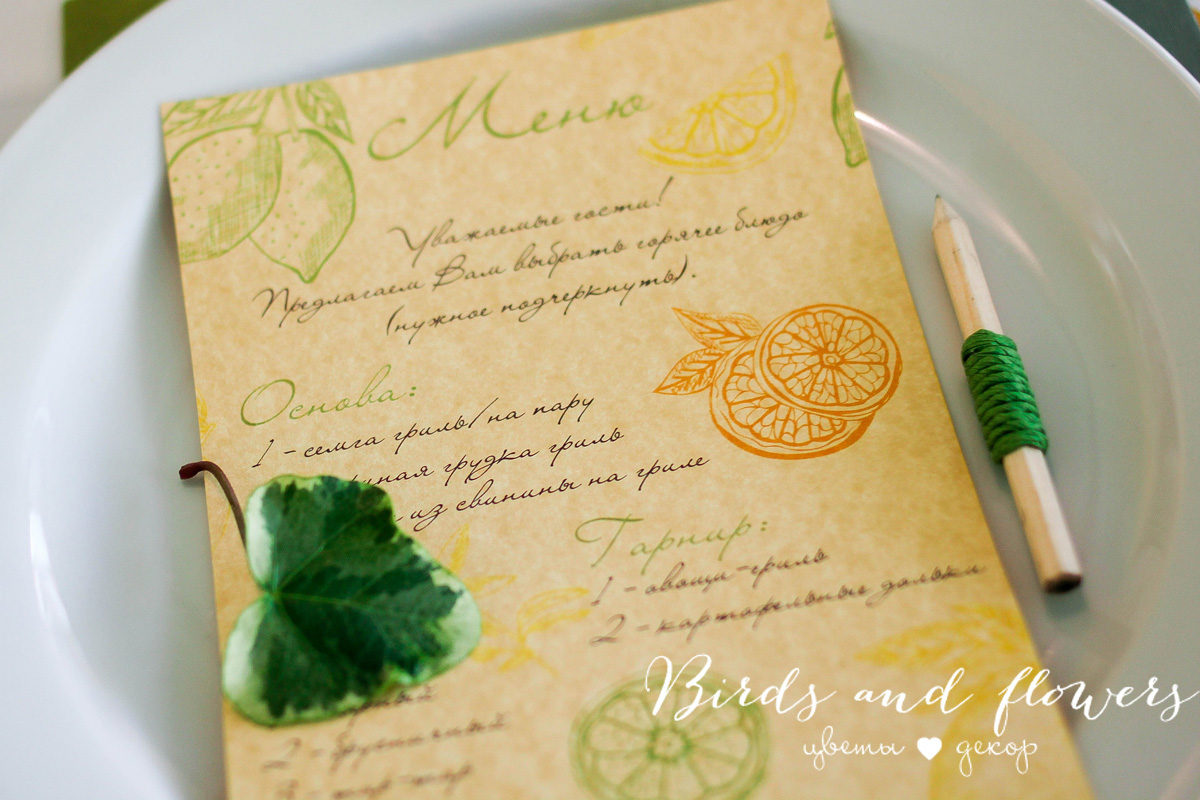 Меню
Уважаемые гости!
Предлагаем Вам выбрать горячее блюдо
(нужное подчеркнуть).
Основа:
1 - семга гриль/на пару
грудка гриль
из свинины на гриле
Гарнир:
1 - овощи-гриль
2 - картофельные дольки
2 - брусничный
3 - тар-тар
Birds and flowers
цветы декор